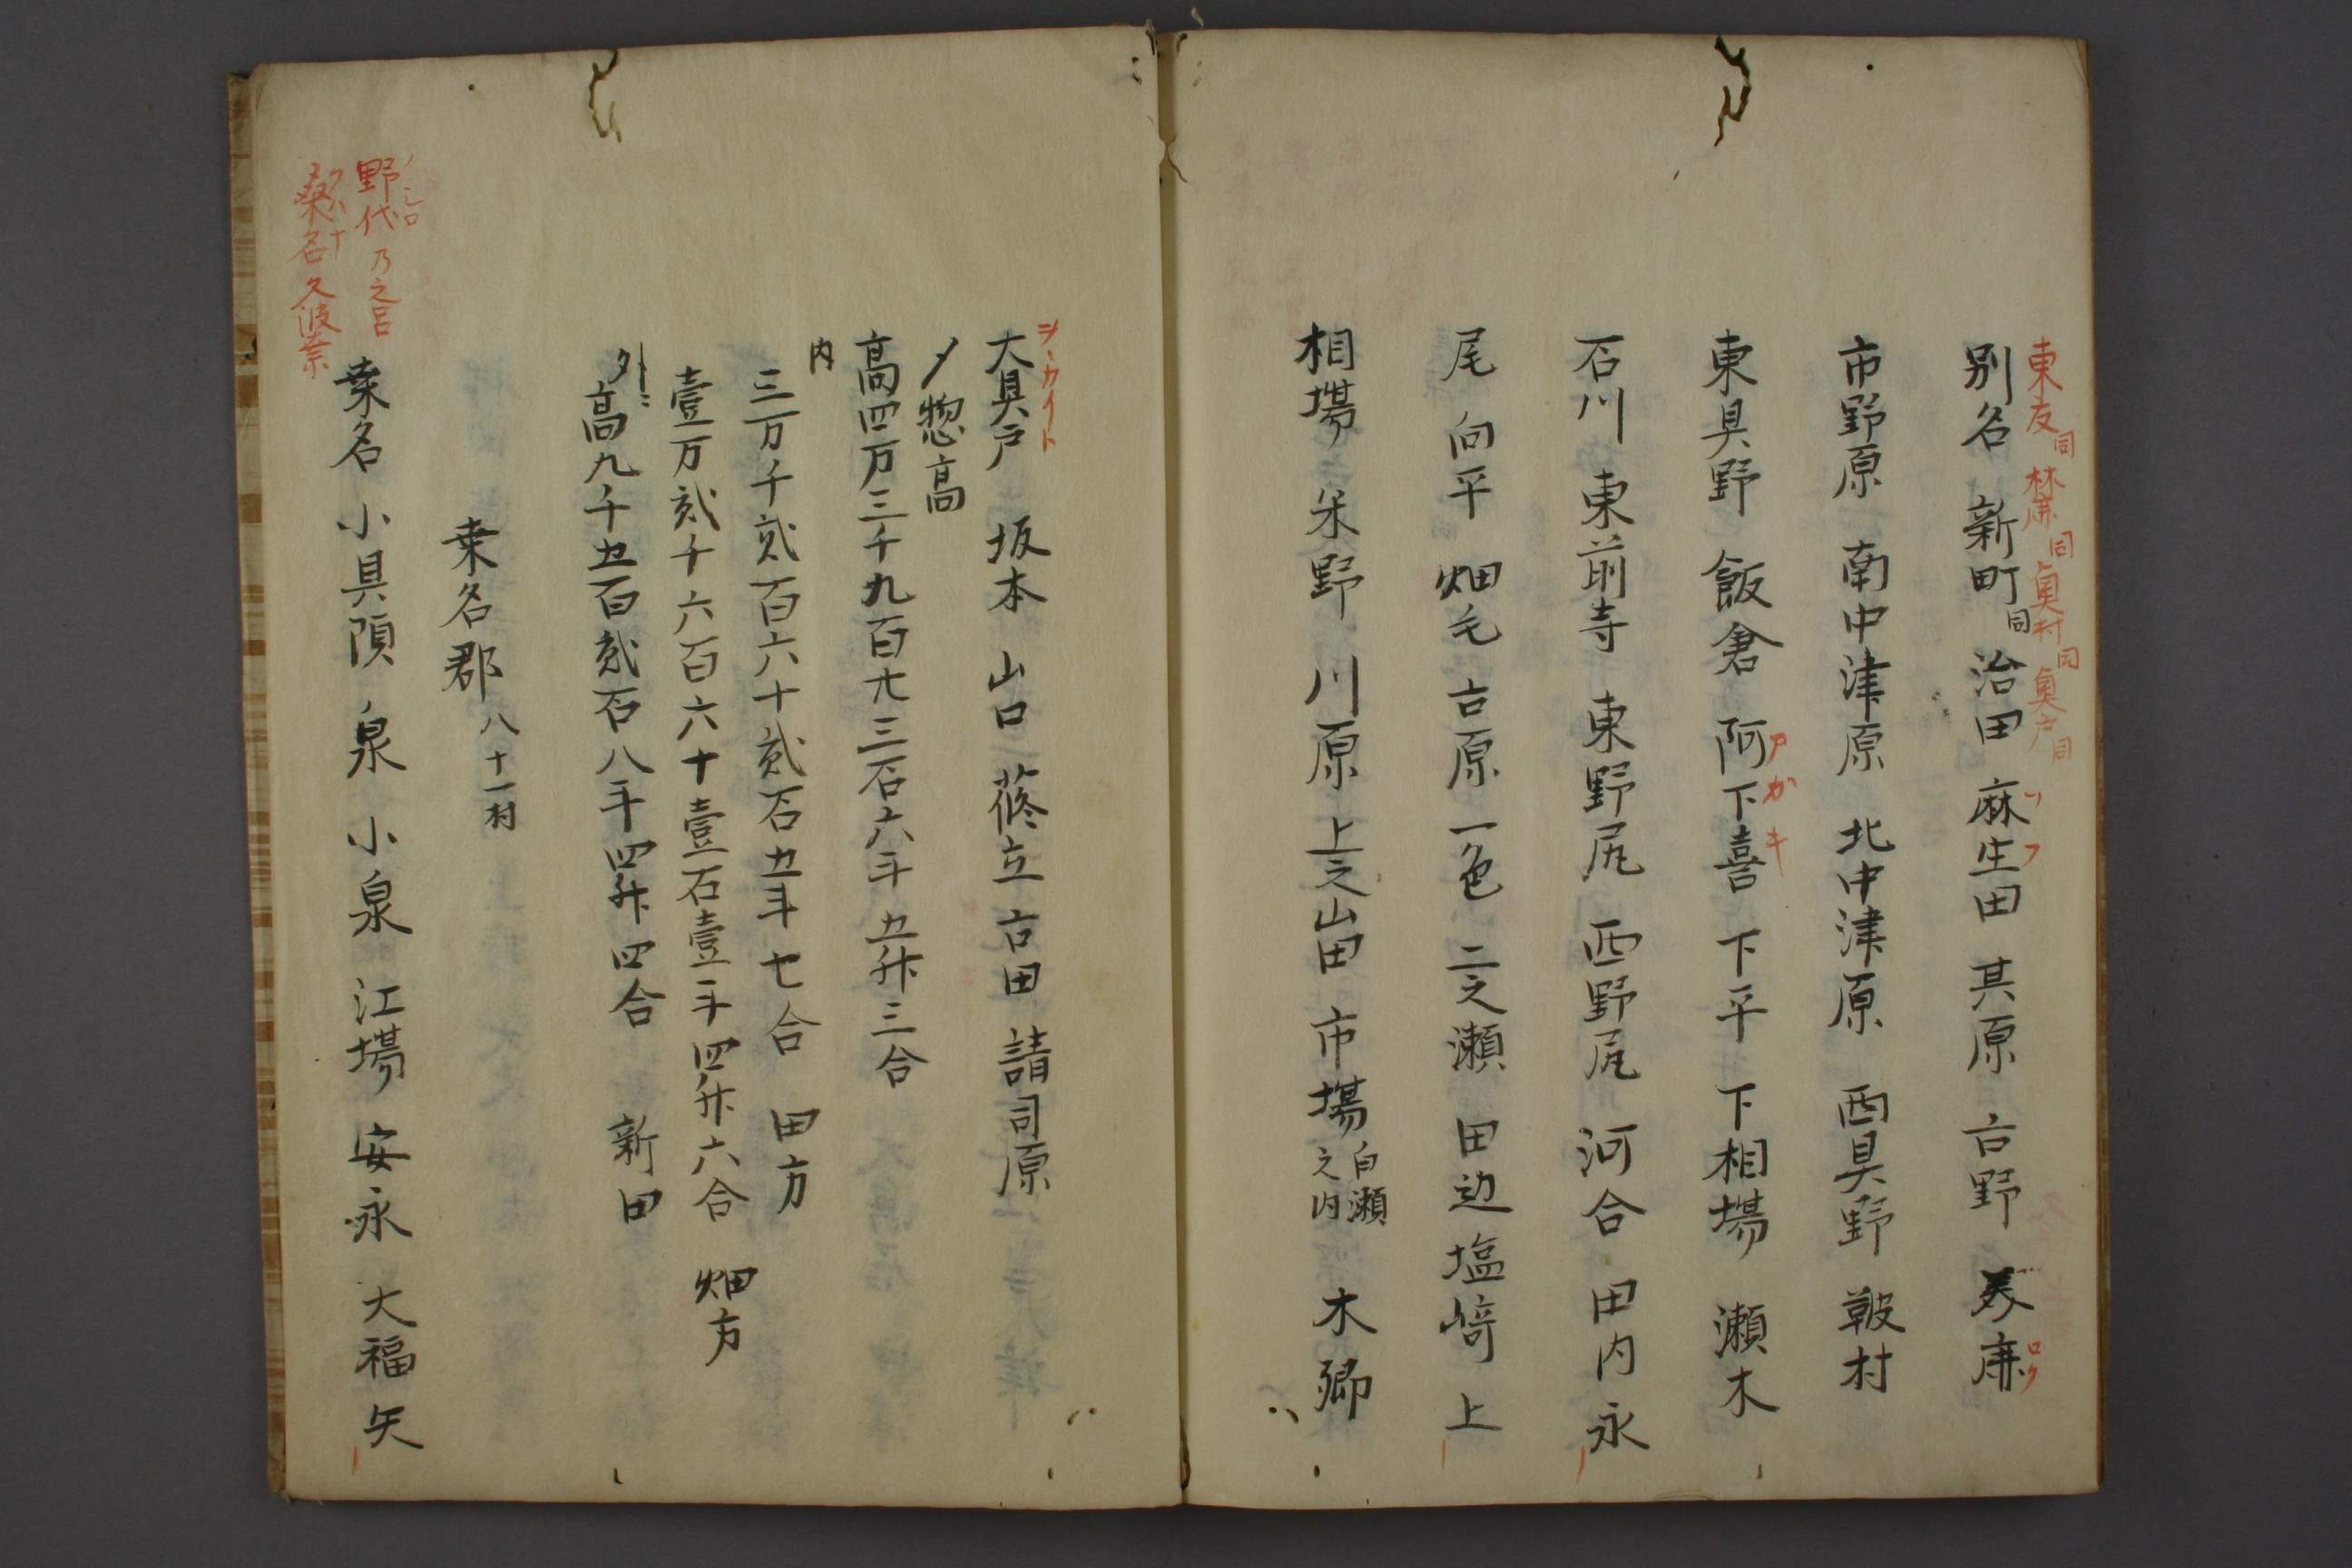 東友同 麻同 奥村同 奥戸同
別名 新町同 治田 麻生田 其原 古野 美鹿
ソフ
ロク
市野原 南中津原 北中津原 西具野 鞁村
東具野 飯倉 阿下喜 下平 下相場 瀬木
アカキ
石川 東前寺 東野尻 西野尻 河合 田内 永
尾 向平 畑毛 古原 一色 二之瀬 田辺 塩﨑 上
相場 米野 川原 上之山田 市場白瀬之内 木郷
大具戸 坂本 山口 蓧立 古田 請司原
カイト
〆惣高
高四万三千九百廿三石六斗五升三合
内
三万千貮百六十貮石五斗七合 田方
壹万貮千六百六十壹石壹斗四升六合 畑方
外ニ
高九千五百貮石八斗四升四合 新田
桒名郡 八十一村
野代 乃之呂
ノシロ
桑名 久波奈
クハナ
桒名 小具須 泉 小泉 江場 安永 大福 矢